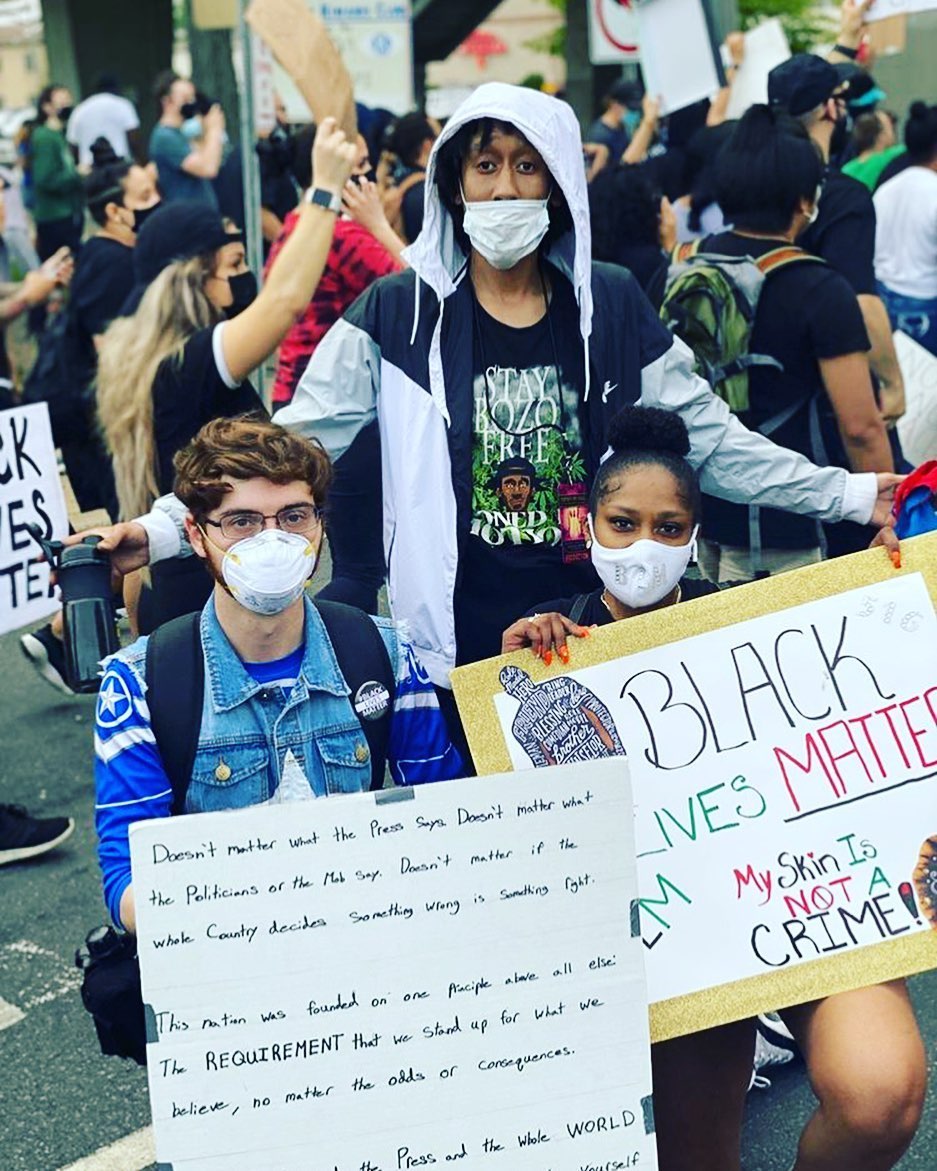 STAY
BOZO
FREE
CK
VES
BLACK
LIVES
MATTER
BLACK
LIVES MATTE
My Skin Is
NOT A
CRIME!
Doesn't matter what the Press Says. Doesn't matter what
the Politicians or the Mob Say. Doesn't matter if the
whole Country decides Something wrong is Something Right.
This nation was founded on one Principle above all else:
The REQUIREMENT that we Stand up for what we
believe, no matter the odds or Consequences.
the Press and the whole WORLD
Yourself